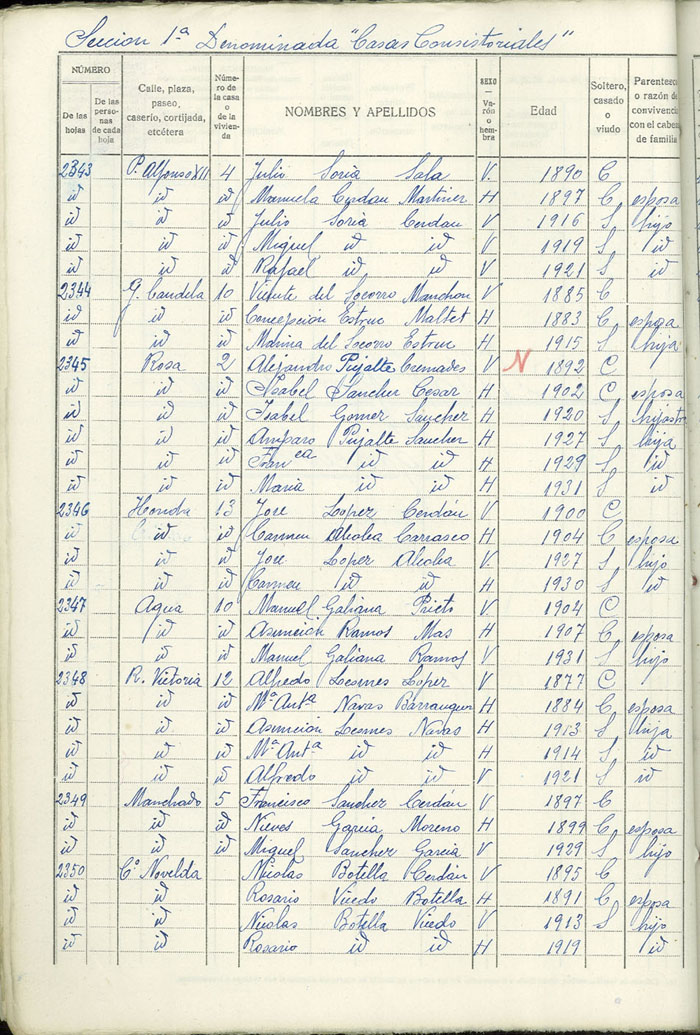 Seccion 1ª Denominada "Casas Consistoriales"
NÚMERO
De las hojas
De las personas de cada hoja
Calle, plaza, paseo, caserío, cortijada, etcétera
Número de la casa o de la vivienda
NOMBRES Y APELLIDOS
SEXO — Varón o hembra
Edad
Soltero, casado o viudo
Parentesco o razón de convivencia con el cabeza de familia
2343 P. Alfonso XII 4 Julio Soria Sala V 1890 C
id id id Manuela Cerdan Martinez H 1897 C esposa
id id id Julio Soria Cerdan V 1916 S hijo
id id id Miguel id id V 1919 S id
id id id Rafael id id V 1921 S id
2344 G. Candela 10 Vicente del Socorro Manchon V 1885 C
id id id Concepcion Estruc Maltet H 1883 C esposa
id id id Marina del Socorro Estruc H 1915 S hija
2345 Rosa 2 Alejandro Pujalte Cremades V N 1892 C
id id id Isabel Sancher Cesar H 1902 C esposa
id id id Isabel Gomer Sancher H 1920 S hijastr
id id id Amparo Pujalte Sancher H 1927 S hija
id id id Franca id id H 1929 S id
id id id Maria id id H 1931 S id
2346 Honda 13 Jose Lopez Cerdán V 1900 C
id id id Carmen Alcolea Carrasco H 1904 C esposa
id id id Jose Lopez Alcolea V 1927 S hijo
id id id Carmen id id H 1930 S id
2347 Agua 10 Manuel Galiana Prieto V 1904 C
id id id Asuncion Ramos Mas H 1907 C esposa
id id id Manuel Galiana Ramos V 1931 S hijo
2348 R. Victoria 12 Alfredo Lesmes Lopez V 1877 C
id id id Mª Antª Navas Barranguer H 1884 C esposa
id id id Asuncion Lesmes Navas H 1913 S hija
id id id Mª Antª id id H 1914 S id
id id id Alfredo id id V 1921 S id
2349 Manchado 5 Francisco Sancher Cerdán V 1897 C
id id id Nieves Garcia Moreno H 1899 C esposa
id id id Miguel Sancher Garcia V 1929 S hijo
2350 Cº Novelda Nicolas Botella Cerdán V 1895 C
id id Rosario Viudo Botella H 1891 C esposa
id id Nicolas Botella Viudo V 1913 S hijo
id id Rosario id id H 1919 id